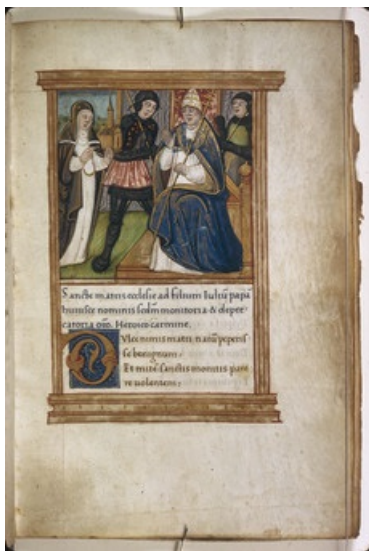 Sancte matris ecclesie ad filium Iuliũ papã
huiusce nominis scđm monitoria & depre-
catoria oĩo. Heroico carmine.
Vlce nimis matri natũ peperiss
se benignum:
Et mitẽ sanctis monitis pare
re uolentem: